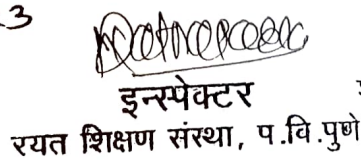 3
इन्स्पेक्टर
रयत शिक्षण संस्था, प.वि.पुणे